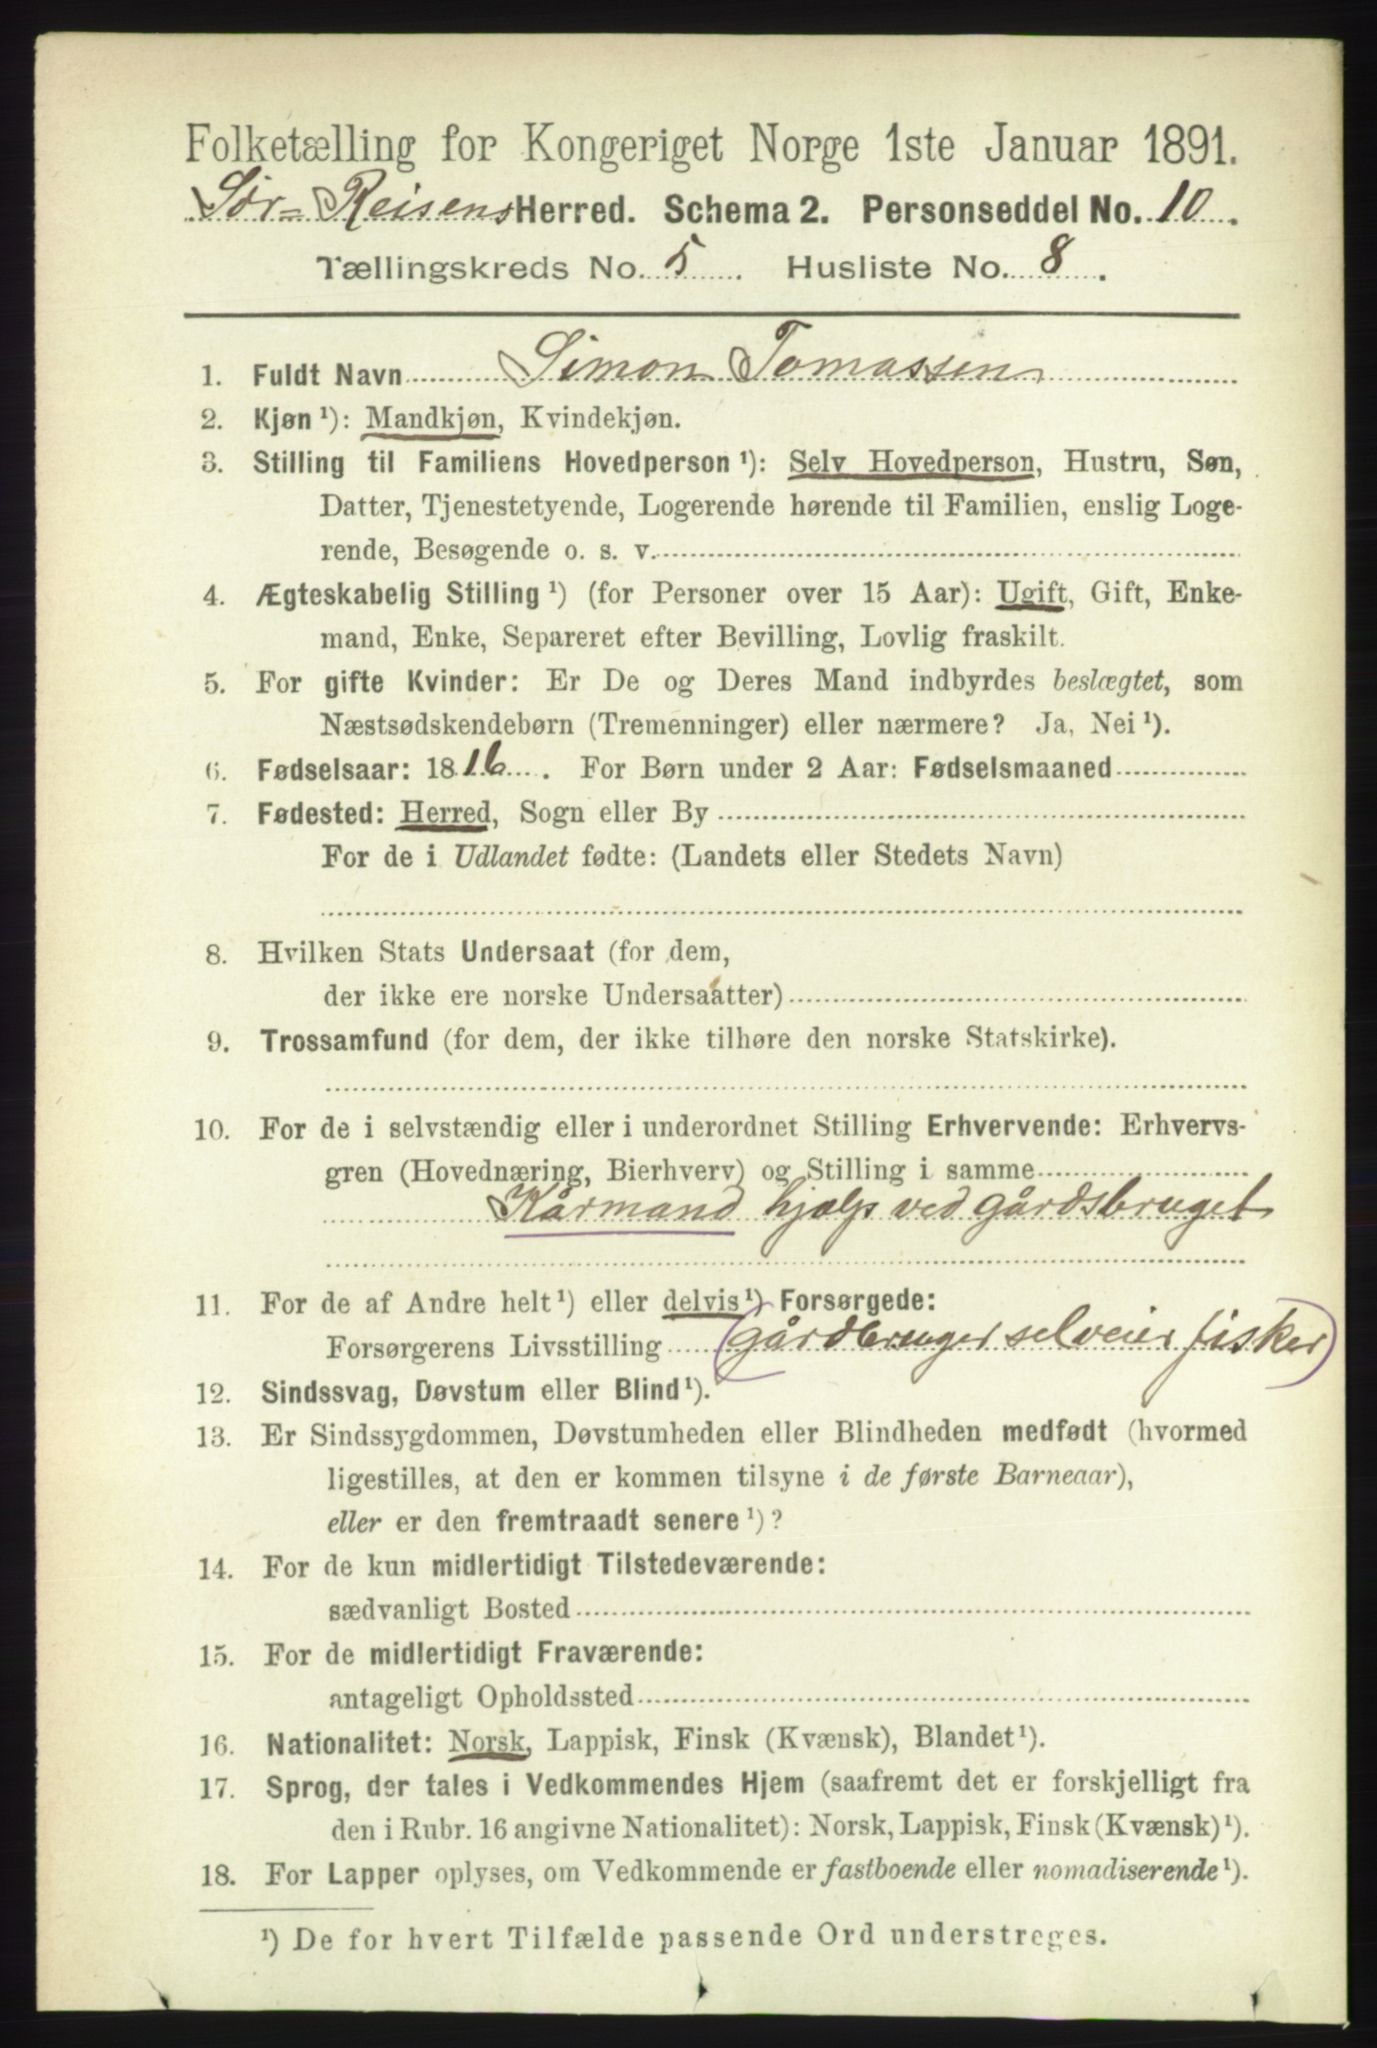 Folketælling for Kongeriget Norge 1ste Januar 1891.
Sør-Reisens Herred. Schema 2. Personseddel No. 10.
Tællingskreds No. 5. Husliste No. 8.
1. Fuldt Navn Simon Tomassen
2. Kjøn ¹): Mandkjøn, Kvindekjøn.
3. Stilling til Familiens Hovedperson ¹): Selv Hovedperson, Hustru, Søn,
Datter, Tjenestetyende, Logerende hørende til Familien, enslig Loge-
rende, Besøgende o. s. v.
4. Ægteskabelig Stilling ¹) (for Personer over 15 Aar): Ugift, Gift, Enke-
mand, Enke, Separeret efter Bevilling, Lovlig fraskilt.
5. For gifte Kvinder: Er De og Deres Mand indbyrdes beslægtet, som
Næstsødskendebørn (Tremenninger) eller nærmere? Ja, Nei ¹).
6. Fødselsaar: 1816. For Børn under 2 Aar: Fødselsmaaned
7. Fødested: Herred, Sogn eller By
For de i Udlandet fødte: (Landets eller Stedets Navn)
8. Hvilken Stats Undersaat (for dem,
der ikke ere norske Undersaatter)
9. Trossamfund (for dem, der ikke tilhøre den norske Statskirke).
10. For de i selvstændig eller i underordnet Stilling Erhvervende: Erhvervs-
gren (Hovednæring, Bierhverv) og Stilling i samme
Kårmand hjælp ved gårdsbruget
11. For de af Andre helt ¹) eller delvis ¹) Forsørgede:
Forsørgerens Livsstilling (gårdbruger selveier fisker)
12. Sindssvag, Døvstum eller Blind ¹).
13. Er Sindssygdommen, Døvstumheden eller Blindheden medfødt (hvormed
ligestilles, at den er kommen tilsyne i de første Barneaar),
eller er den fremtraadt senere ¹)?
14. For de kun midlertidigt Tilstedeværende:
sædvanligt Bosted
15. For de midlertidigt Fraværende:
antageligt Opholdssted
16. Nationalitet: Norsk, Lappisk, Finsk (Kvænsk), Blandet ¹).
17. Sprog, der tales i Vedkommendes Hjem (saafremt det er forskjelligt fra
den i Rubr. 16 angivne Nationalitet): Norsk, Lappisk, Finsk (Kvænsk) ¹).
18. For Lapper oplyses, om Vedkommende er fastboende eller nomadiserende ¹).
¹) De for hvert Tilfælde passende Ord understreges.